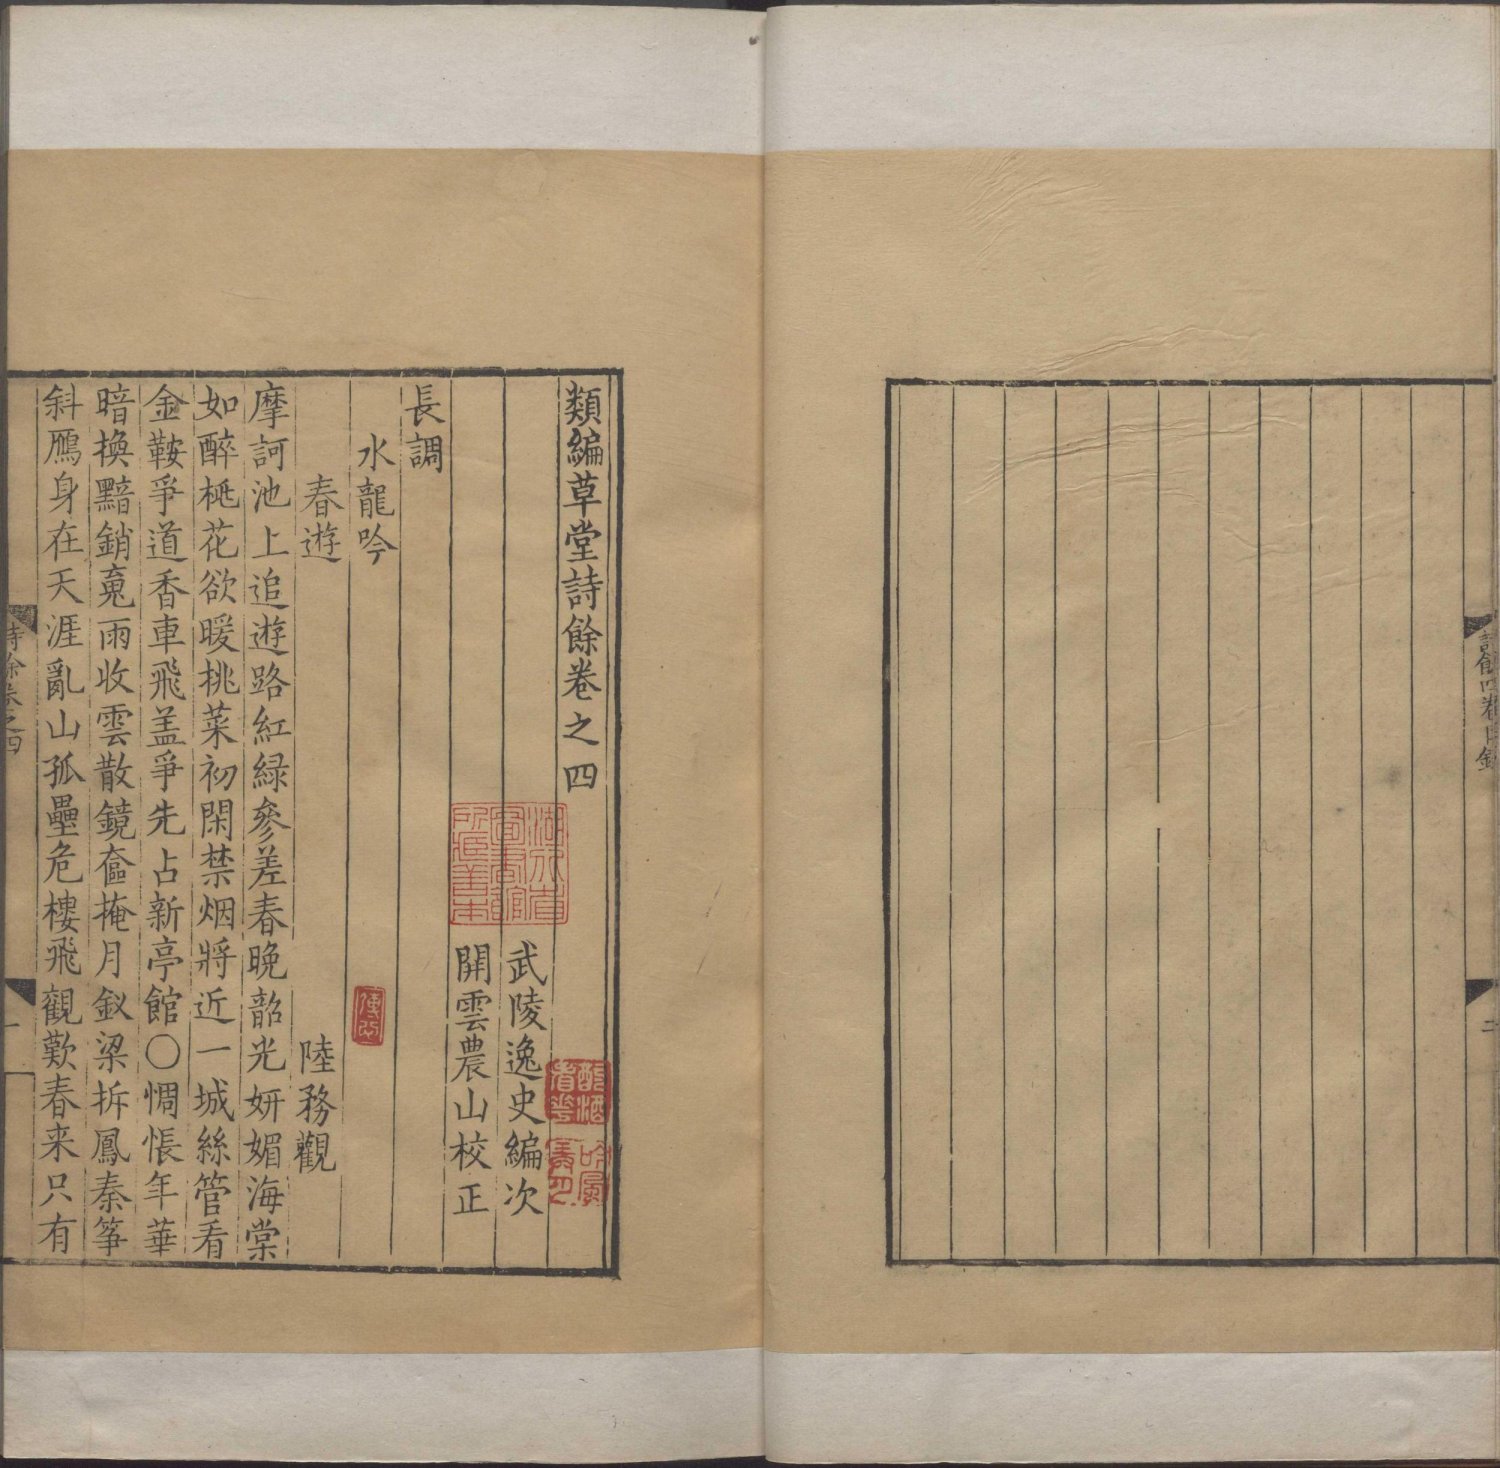 詩餘四卷目錄
二
類編草堂詩餘卷之四
武陵逸史編次
開雲農山校正
長調
水龍吟
春遊
陸務觀
摩訶池上追遊路紅緑參差春晚韶光妍媚海棠
如醉桃花欲暖挑菜初閑禁烟將近一城絲管看
金鞍爭道香車飛盖爭先占新亭館〇惆悵年華
暗換黯銷䰟雨收雲散鏡奩掩月釵梁拆鳳秦筝
斜鴈身在天涯亂山孤壘危樓飛觀歎春来只有
詩餘卷之四
一
湖北省
圖書館
所藏善本